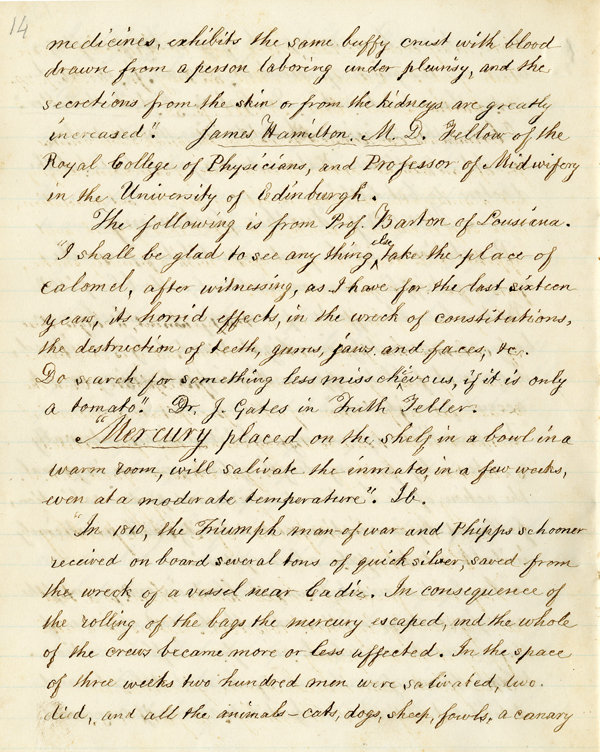 14
medicines, exhibits the same buffy crust with blood
drawn from a person laboring under pleurisy, and the
secretions from the skin or from the kidneys are greatly
increased". James Hamilton. M. D. Fellow of the
Royal College of Physicians, and Professor of Midwifery
in the University of Edinburgh.
The following is from Prof. Barton of Lousiana.
"I shall be glad to see any thing else take the place of
calomel, after witnessing, as I have for the last sixteen
years, its horrid effects, in the wreck of constitutions,
the destruction of teeth, gums, jaws and faces, &c.
Do search for something less misschievous, if it is only
a tomato". Dr. J. Gates in Truth Teller.
"Mercury placed on the shelf in a bowl in a
warm room, will salivate the inmates, in a few weeks,
even at a moderate temperature". Ib.
"In 1810, the Triumph man-of-war and Phipps schooner
received on board several tons of quicksilver, saved from
the wreck of a vessel near Cadiz. In consequence of
the rolling of the bags the mercury escaped, and the whole
of the crews became more or less affected. In the space
of three weeks two hundred men were salivated, two
died, and all the animals - cats, dogs, sheep, fowls, a canary